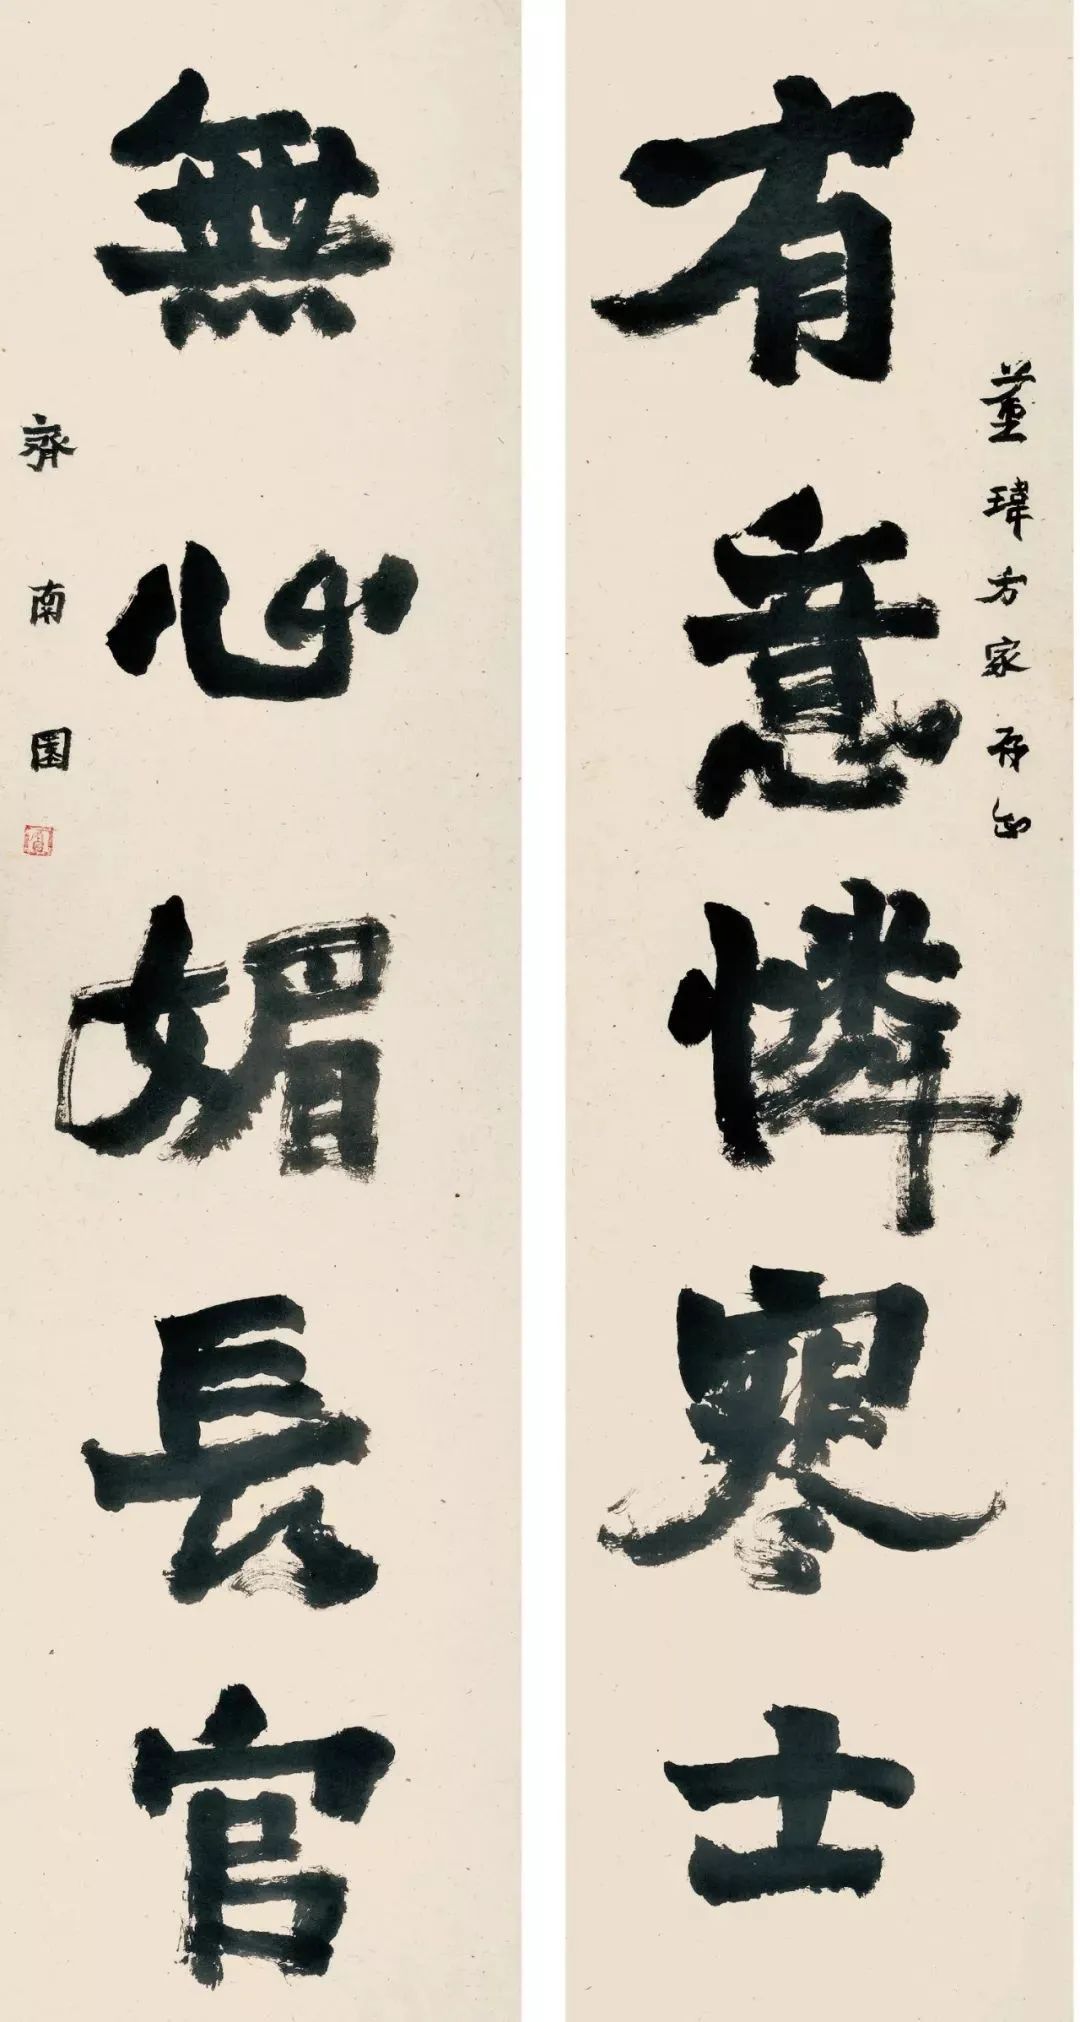 董瑋方家存正
有意憐寒士
無心媚長官
齊南園